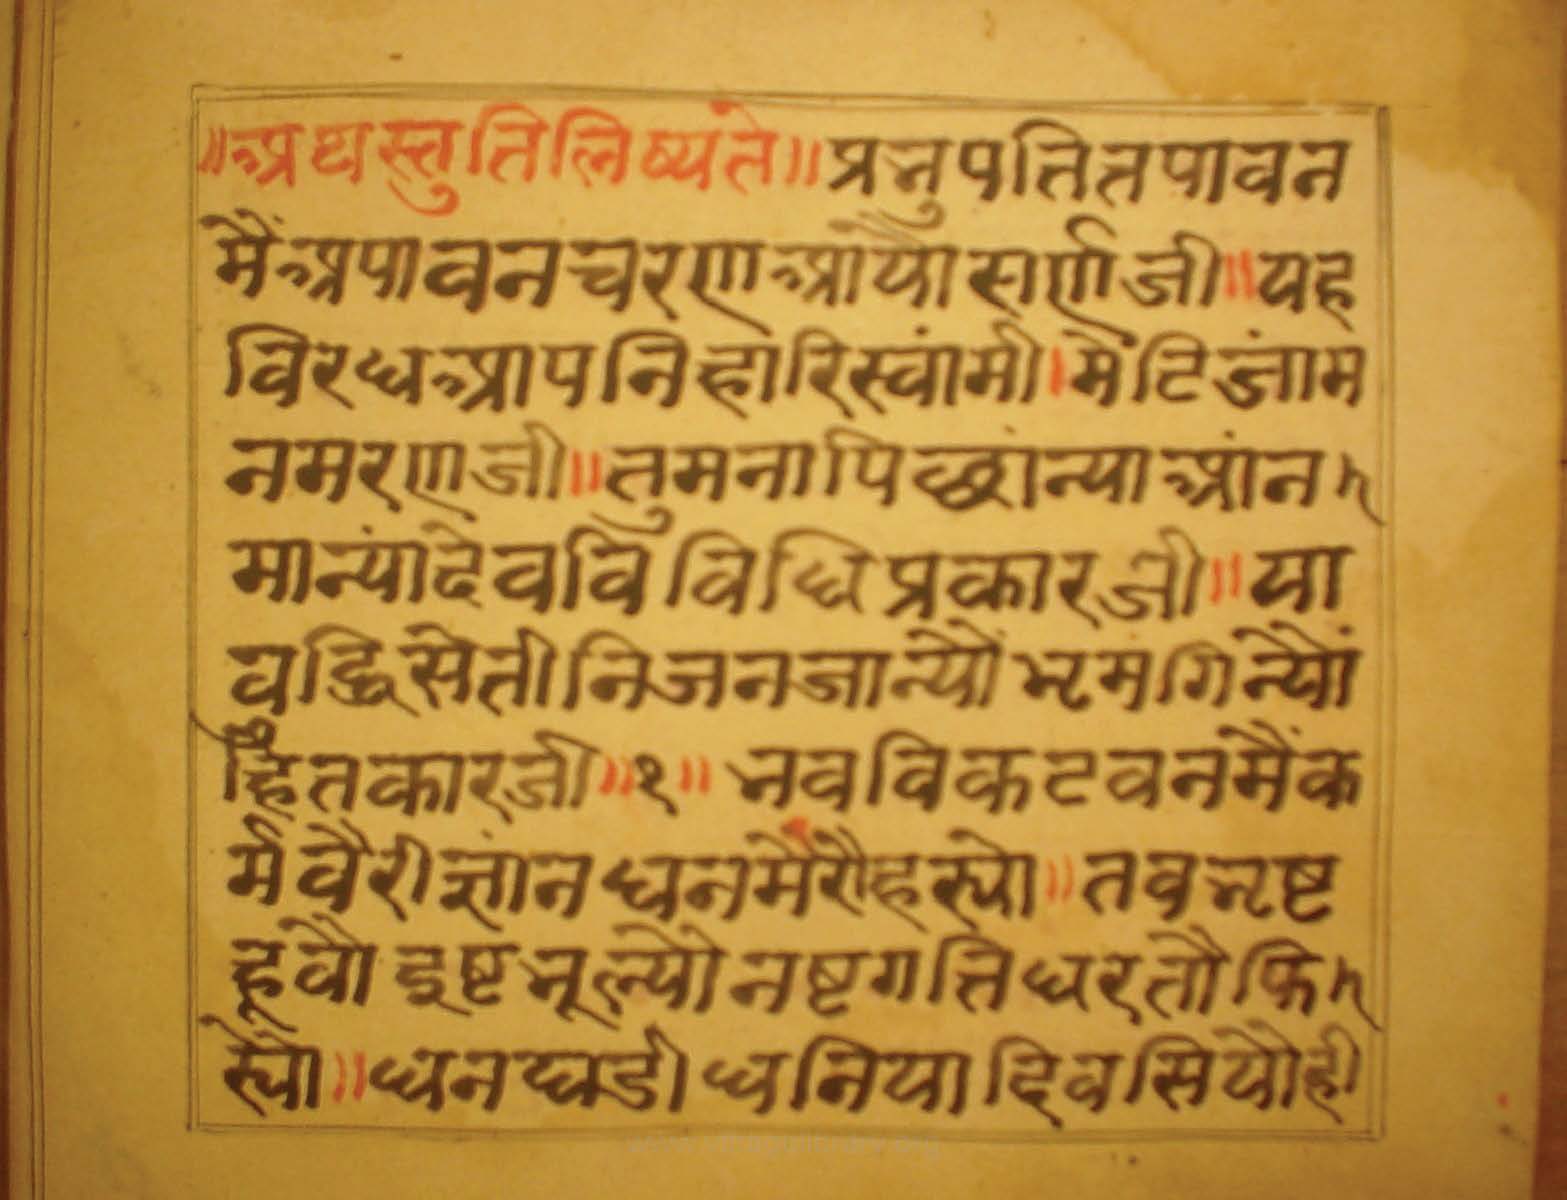 ॥अथस्तुतिलिष्यते॥प्रभुपतितपावन
मैंअपावनचरणआयौसर्णजी॥यह
विरधआपनिहारिस्वांमी।मेटिजांम
नमरणजी॥तुमनापिछांन्याआंन
मान्यांदेवविविधिप्रकारजी॥या
बुद्धिसेतीनिजनजान्यौभ्रमगिन्यौं
हितकारजी॥१॥भवविकटवनमैंक
र्मवैरीज्ञांनधनमेरौहर्यो॥तबभ्रष्ट
हूवौइष्टभूल्योनष्टगत्तिधरतौफि
र्यो॥धनघडीधनियादिवसियौही